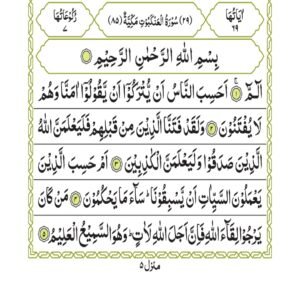 اٰیَاتُهَا ۶۹ (۲۹) سُوْرَةُ الْعَنْكَبُوْتِ مَكِّیَّةٌ (۸۵) رُكُوْعَاتُهَا ۷
بِسْمِ اللّٰهِ الرَّحْمٰنِ الرَّحِیْمِ
الٓمّٓ ۚ﴿۱﴾ اَحَسِبَ النَّاسُ اَنْ یُّتْرَكُوْۤا اَنْ یَّقُوْلُوْۤا اٰمَنَّا وَهُمْ
لَا یُفْتَنُوْنَ ﴿۲﴾ وَلَقَدْ فَتَنَّا الَّذِیْنَ مِنْ قَبْلِهِمْ فَلَیَعْلَمَنَّ اللّٰهُ
الَّذِیْنَ صَدَقُوْا وَلَیَعْلَمَنَّ الْكٰذِبِیْنَ ﴿۳﴾ اَمْ حَسِبَ الَّذِیْنَ
یَعْمَلُوْنَ السَّیِّاٰتِ اَنْ یَّسْبِقُوْنَا ؕ سَآءَ مَا یَحْكُمُوْنَ ﴿۴﴾ مَنْ كَانَ
یَرْجُوْا لِقَآءَ اللّٰهِ فَاِنَّ اَجَلَ اللّٰهِ لَاٰتٍ ؕ وَهُوَ السَّمِیْعُ الْعَلِیْمُ ﴿۵﴾
منزل ۵